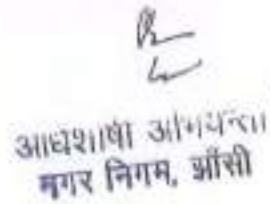 आधशाषी अभियन्ता
नगर निगम, झाँसी